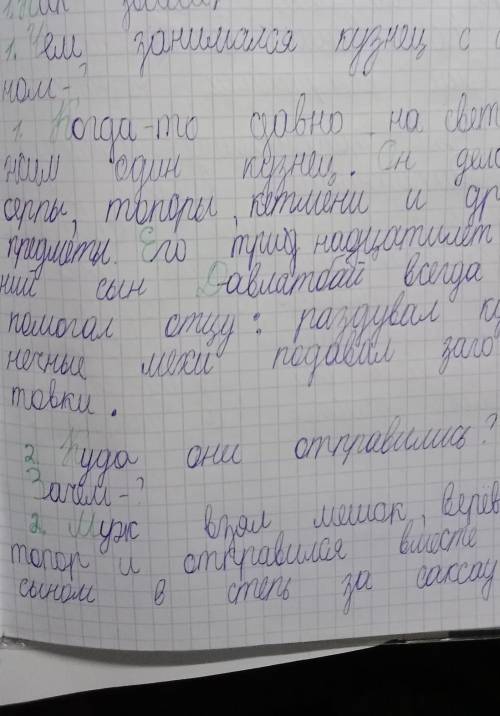 1. Чем занимался кузнец с
ном-?
1. Когда-то давно на свет
жил один кузнец. Он дела
серпы, топоры, кетмени и др
предметы. Его тринадцатилет
ний сын Давлатбай всегда
помогал отцу: раздувал куз
нечные мехи подавал заго
товки.
2. Куда они отправились?
Зачем-?
2. Муж взял мешок, верёв
топор и отправился вместе
сыном в степь за саксау